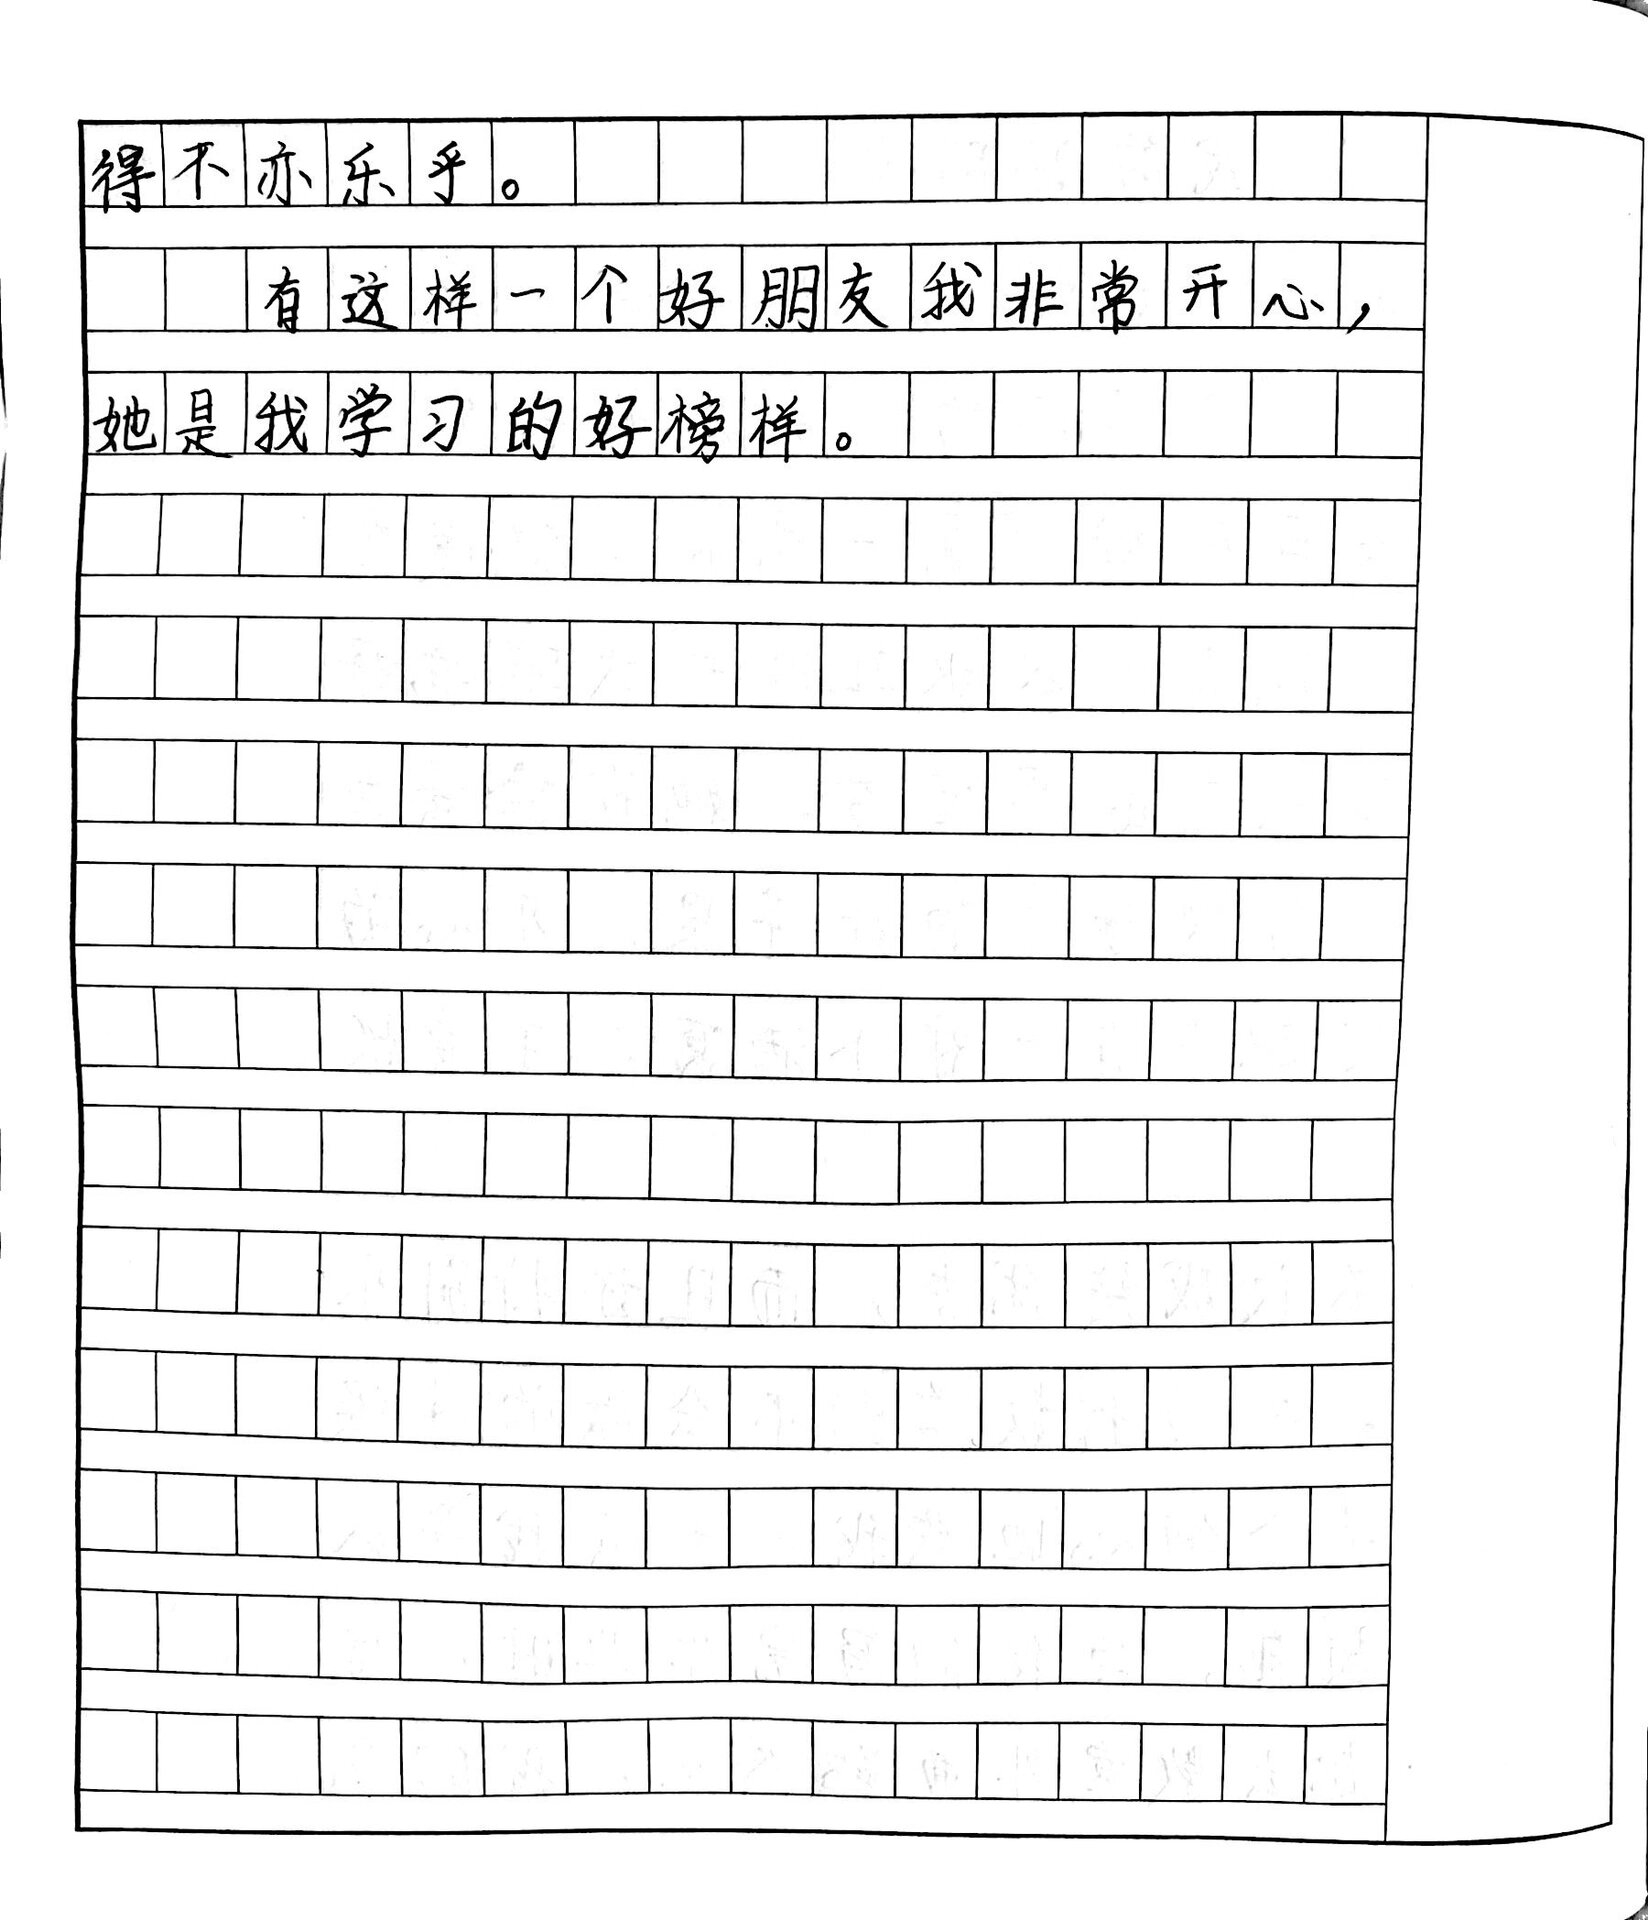 得不亦乐乎。
有这样一个好朋友我非常开心，
她是我学习的好榜样。